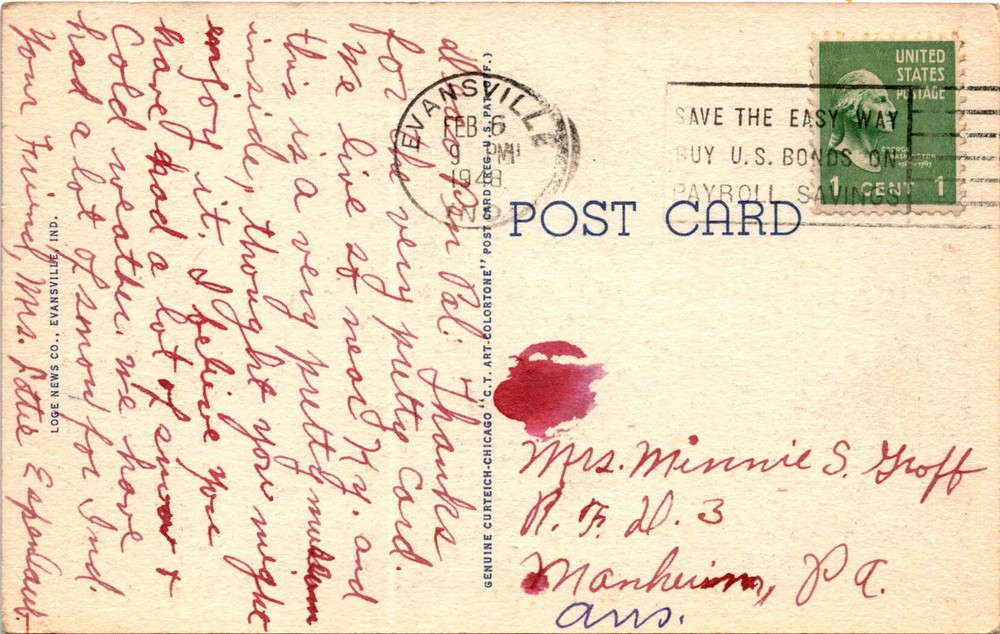 Hello Pen Pal: Thanks
for the very pretty Card.
We live so near Ky. and
this is a very pretty museum
inside, thought you might
enjoy it, I belive you
have had a lot of snow +
Cold weather. we have
had a lot of snow for Ind.
Your Friend, Mrs. Lottie Espenlaub.
LOGE NEWS CO., EVANSVILLE, IND.
GENUINE CURTEICH-CHICAGO "C.T. ART-COLORTONE" POST CARD (REG. U.S. PAT. OFF.)
EVANSVILLE
FEB 6
9 PM
1948
IND.
SAVE THE EASY WAY
BUY U.S. BONDS ON
PAYROLL SAVINGS
UNITED
STATES
POSTAGE
GEORGE
WASHINGTON
1 CENT 1
POST CARD
Mrs. Minnie S. Groff
R. F. D. 3
Manheim, Pa.
ans.